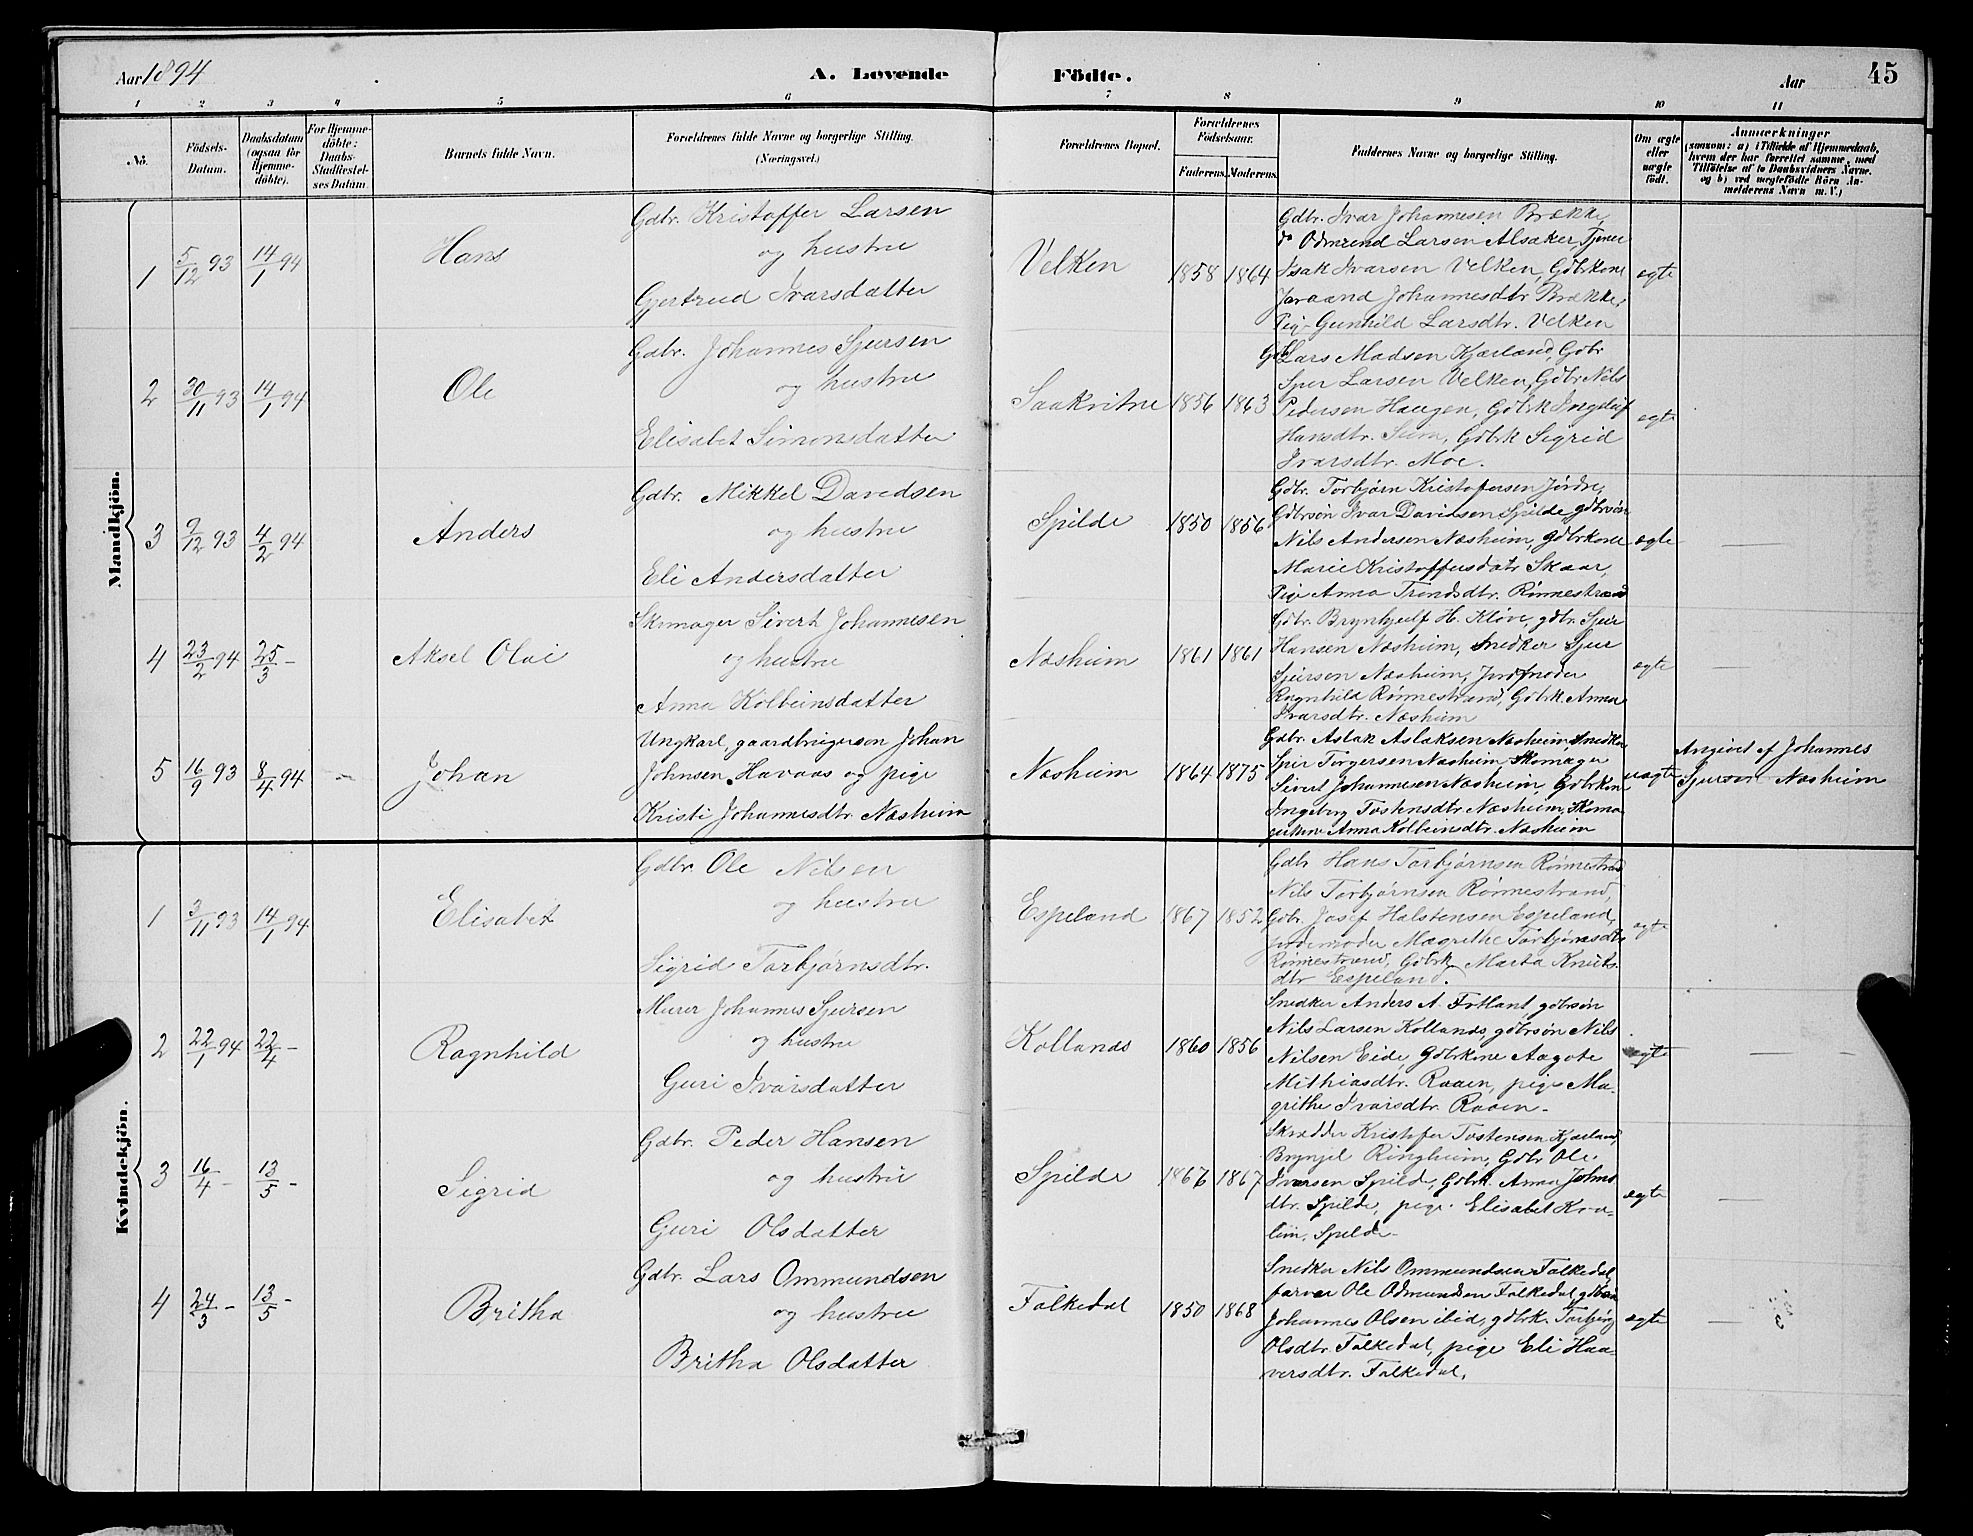 Aar 1894
A. Levende
Födte.
Aar
45
1 2 3 4 5 6 7 8 9 10 11
No.
Födsels-Datum.
Daabsdatum (ogsaa for Hjemme-döbte).
For Hjemme-döbte: Daabs-Stadfæstel-ses Datum.
Barnets fulde Navn.
Forældrenes fulde Navne og borgerlige Stilling. (Næringsvei.)
Forældrenes Bopæl.
Forældrenes Födselsaar.
Faderens. Moderens.
Faddernes Navne og borgerlige Stilling.
Om ægte eller uægte födt.
Anmærkninger
(saasom: a) i Tilfælde af Hjemmedaab, hvem der har forrettet samme, med Tilföielse af to Daabsvidners Navne, og b) ved uægtefödte Börn An-melderens Navn m. V.)
Mandkjön.
1 5/12 93 14/1 94 Hans
Gdbr. Kristoffer Larsen
og hustru
Gjertrud Ivarsdatter
Velken 1858 1864
Gdbr. Ivar Johannesen Brække,
do Odmund Larsen Alsaker, Tjener
Isak Ivarsen Velken, Gdbrkone
Johannesdtr Brække,
Pig. Gunhild Larsdtr. Velken
ægte
2 30/11 93 14/1 94 Ole
Gdbr. Johannes Sjursen
og hustru
Elisabet Simonsdatter
Saakvitne 1856 1863
Gdb Lars Madsen Kjærland, Gdbr
Sjur Larsen Velken, Gdbr Nils
Pedersen Haugen, Gdbrk
Hansdtr. Seim, Gdbrk Sigrid
Ivarsdtr. Moe.
ægte
3 9/12 93 4/2 94 Anders
Gdbr. Mikkel Davedsen
og hustru
Eli Andersdatter
Spilde 1850 1856
Gdbr. Torbjørn Kristofersen Jørdre,
Gdbrsøn Ivar Davidsen Spilde, gdbrsøn
Nils Andersen Næsheim, gdbrkone
Marie Kristoffersdatr Skaar,
Pige Anna Trondsdtr. Rønnestrand
ægte —
4 23/2 94 25/3 - Aksel Olai
Skomager Sivert Johannesen
og hustru
Anna Kolbeinsdatter
Næsheim 1861 1861
Gdbr. Brynhjulf H. Kløve, gdbr. Sjur
Hansen Næsheim, Snedker Sjur
Sjursen Næsheim, Jordmoder
Ragnhild Rønnestrand, Gdbrk. Anna
Ivarsdtr. Næsheim
ægte —
5 16/9 93 8/4 94 - Johan
Ungkarl, gaardbrugerson Johan
Johnsen Havaas og pige
Kristi Johannesdtr. Næsheim
Næsheim 1864 1875
Gdbr. Aslak Aslaksen Næsheim, Snedker
Sjur Torgersen Næsheim Skomager
Sivert Johannesen Næsheim, Gdbrkone
Ingeborg Tostensdtr Næsheim, Skoma
gerkone Anna Kolbeinsdtr. Næsheim
uægte
Angivet af Johannes
Sjursen Næsheim
Kvindekjön.
1 3/11 93 14/1 94 Elisabet
Gdbr. Ole Nilsen
og hustru
Sigrid Torbjørnsdtr.
Espeland 1867 1852
Gdbr Hans Torbjørnsen Rønnestrand
Nils Torbjørnsen Rønnestrand,
Gdbr. Josef Halstensen Espeland,
jordemoder Magrethe Torbjørnsdtr
Rønnestrand, Gdbrk Marta Knuts-
dtr Espeland.
ægte
2 22/1 94 22/4 - Ragnhild
Murer Johannes Sjursen
og hustru
Guri Ivarsdatter
Kollands 1860 1856
Snedker Anders A. Folland, gdbrsøn
Nils Larsen Kollands, gdbrsøn Nils
Nilsen Eide, Gdbrkone Aagote
Mithiasdtr. Raaen, pige Ma-
grethe Ivarsdtr. Raaen-
ægte — —
3 16/4 - 13/5 - Sigrid
Gdbr. Peder Hansen
og hustru
Guri Olsdatter
Spilde 1867 1867
Skrædder Kristofer Tostensen Kjærland,
Brynjel Ringheim, Gdbr Ole
Iversen Spilde, Gdbrk. Anna Johns
dtr. Spilde, pige Elisabet
Spilde-
ægte —
4 24/3 - 13/5 - Britha
Gdbr. Lars Ommundsen
og hustru
Britha Olsdatter
Folkedal 1850 1868
Snedker Nils Ommundsen Folkedal,
farver Ole Odmundsen Folkedal,
Johannes Olsen ibid, gdbrk. Torbjørg
Olsdtr. Folkedal, pige Eli Haa-
versdtr. Folkedal.
ægte —